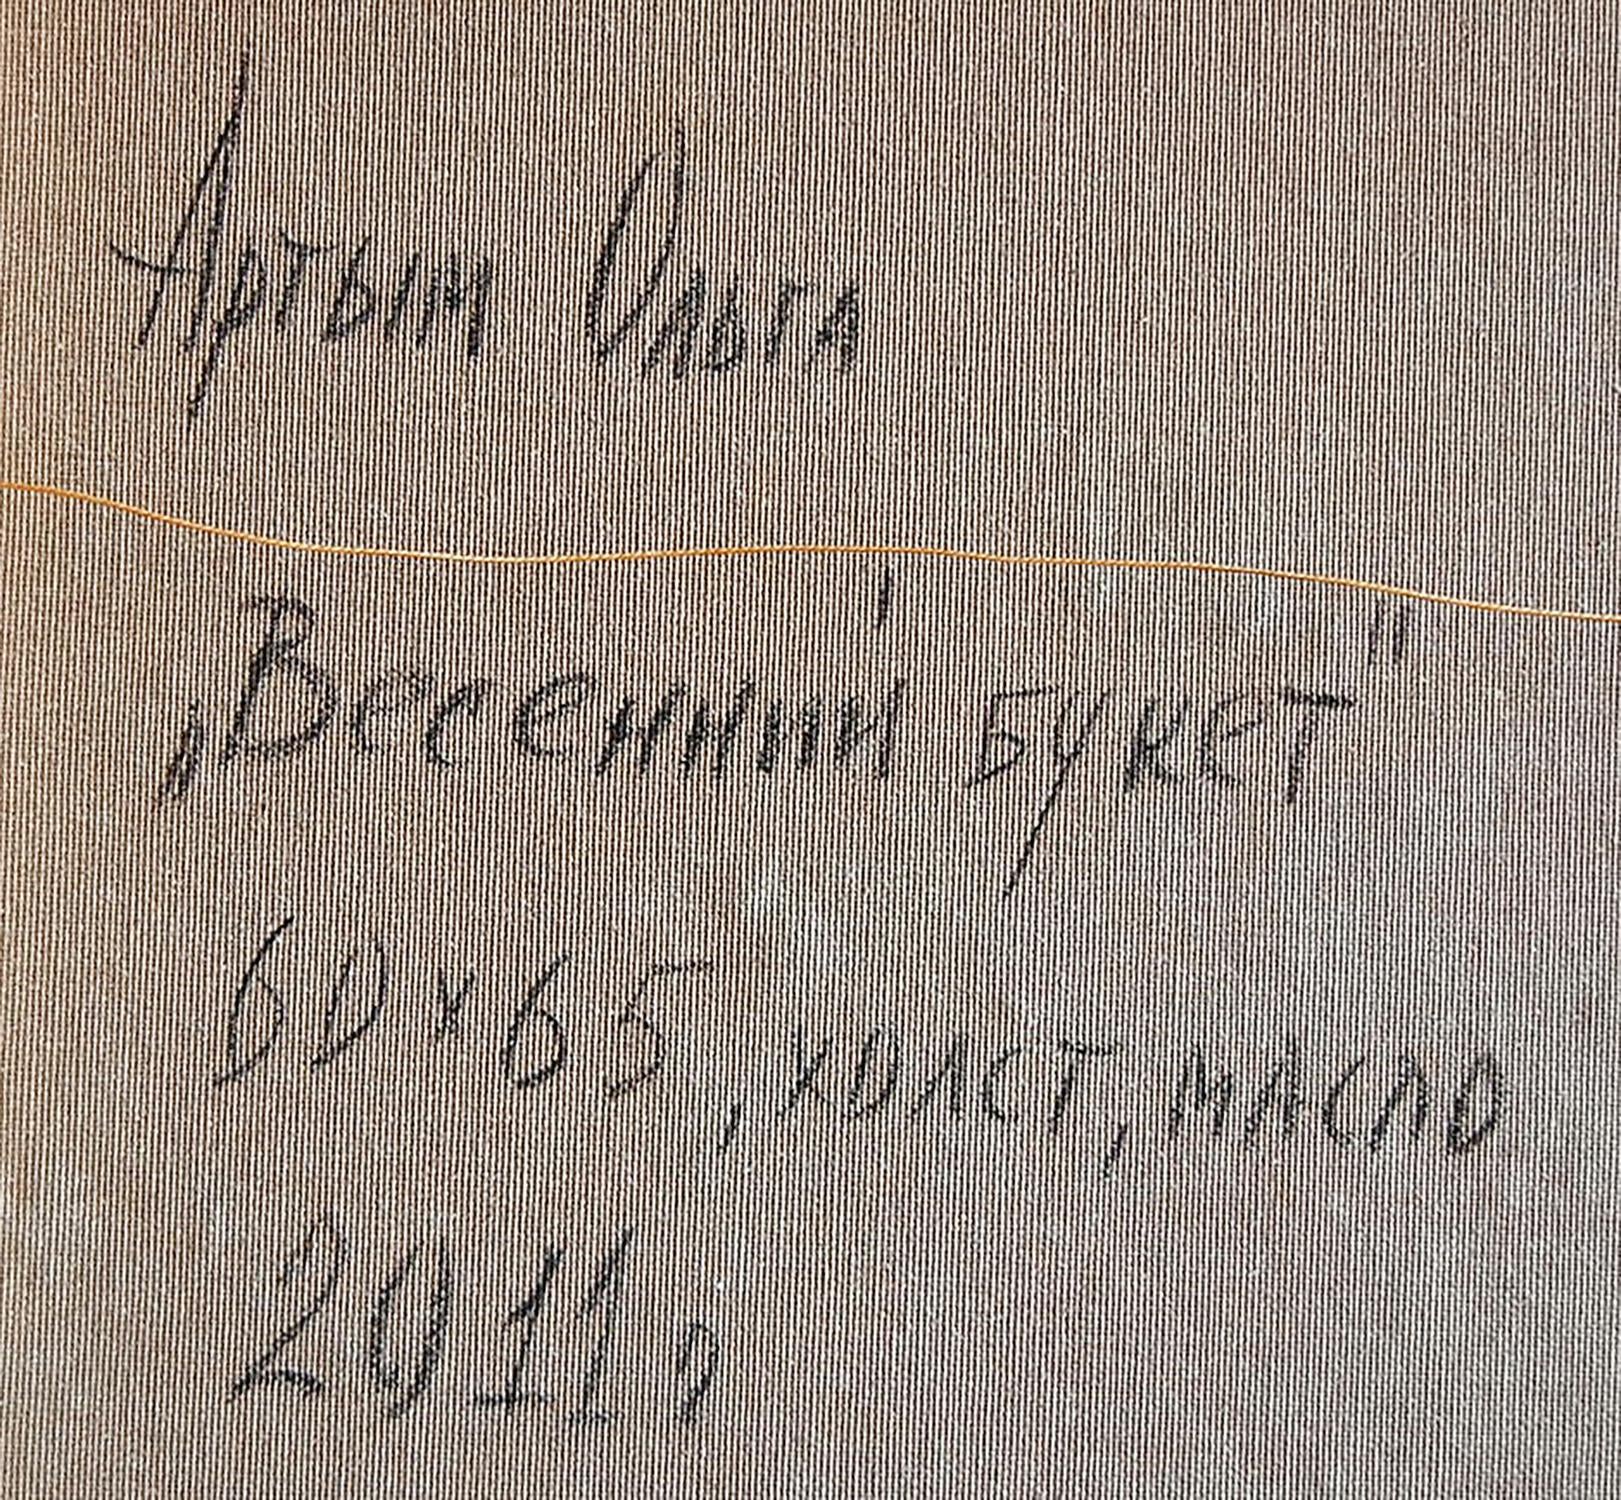 Артым Ольга
„Весенний букет"
60х65, холст, масло
2011г